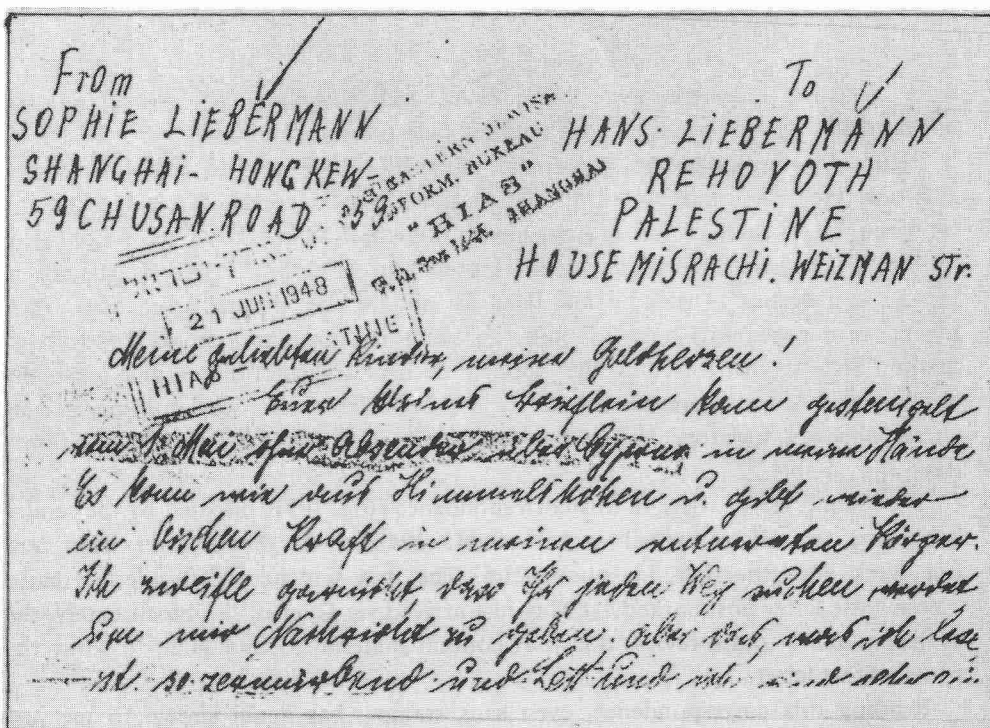 From
SOPHIE LIEBERMANN
SHANGHAI - HONGKEW -
59 CHUSAN ROAD 59
To
HANS LIEBERMANN
REHOVOTH
PALESTINE
HOUSE MISRACHI. WEIZMAN Str.
INFORM. BUREAU
"HIAS"
SHANGHAI
21 JUN 1948
HIAS
Meine geliebten Kinder, meine Goldherzen!
Euer kleines Brieflein kam gestempelt
vom 1. Mai ohne Absender über Cyprus in meine Hände
Es kam wie aus Himmelshöhen u. gibt wieder
ein bischen Kraft in meinen Körper.
Ich zweifle garnicht, dass Ihr jeden Weg suchen werdet
um mir Nachricht zu geben, aber das, was ich lese
ist so zermürbend und Lott und ich sind